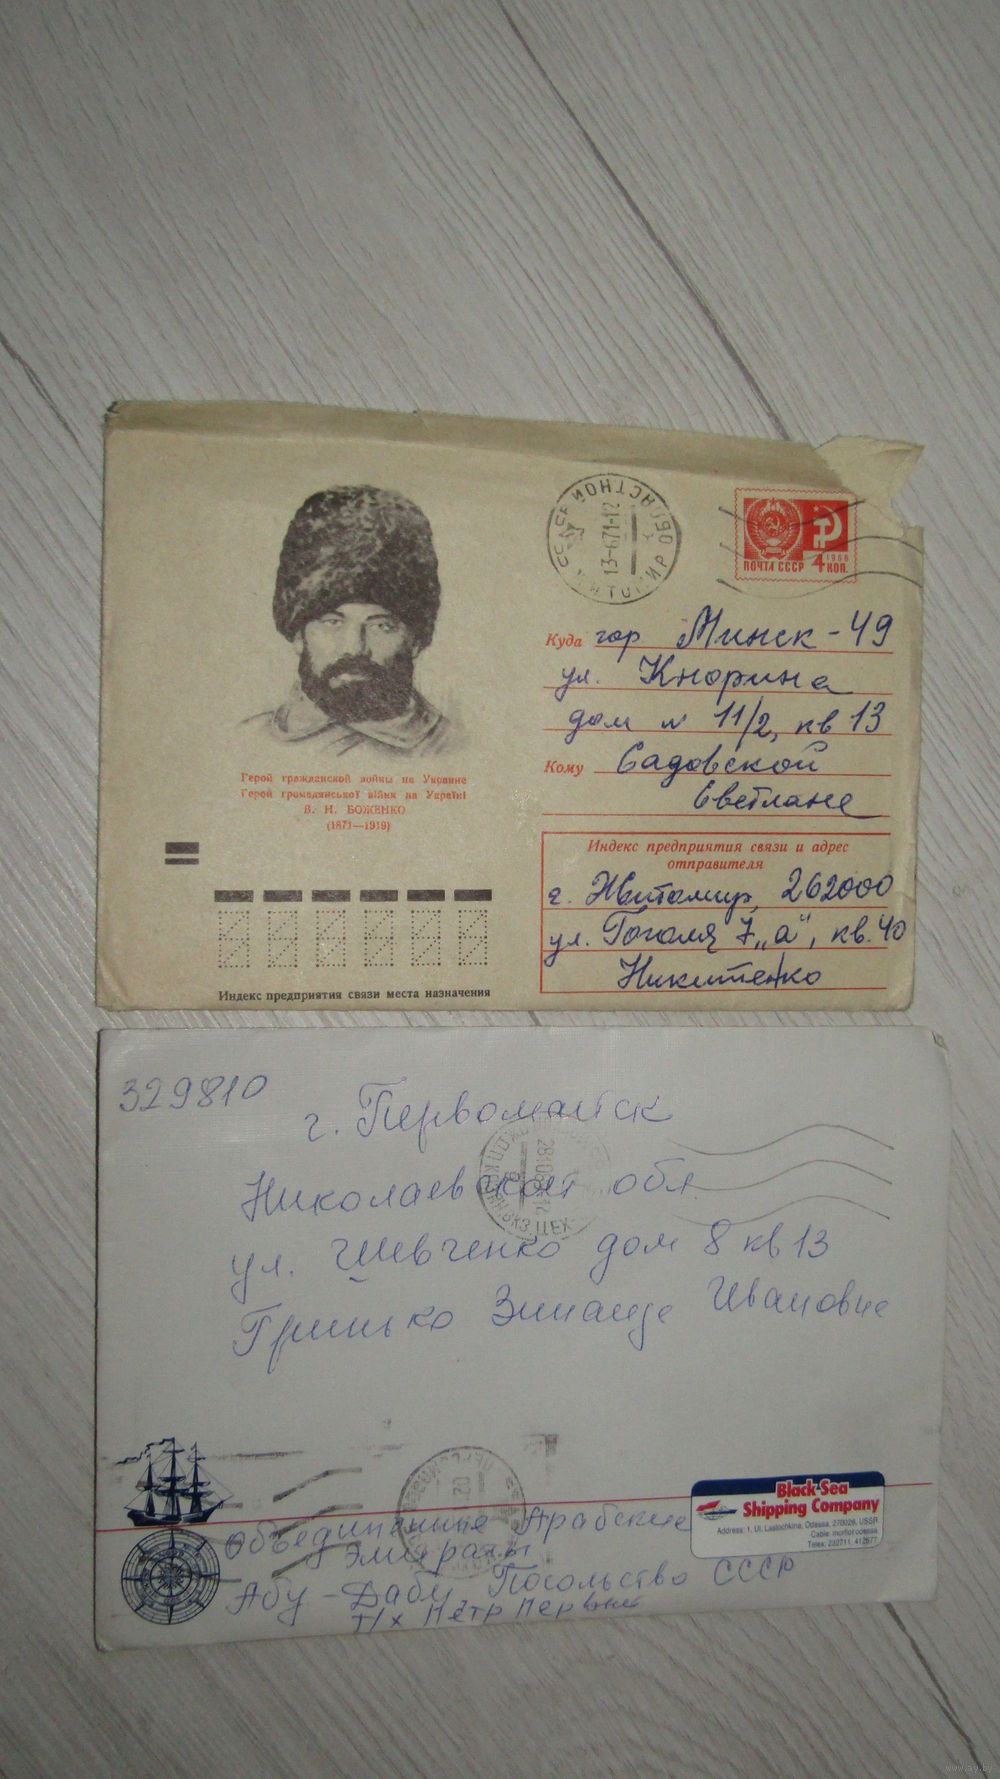 ПОЧТА СССР 4 КОП.
1966
13-6 71-12
Куда гор Минск-49
ул. Кнорина
дом № 11/2, кв 13
Кому Садовской
Светлане
Герой гражданской войны на Украине
Герой громадянської війни на Україні
В. Н. БОЖЕНКО
(1871—1919)
Индекс предприятия связи и адрес
отправителя
г. Житомир, 262000
ул. Гоголя 7 „а", кв. 40
Никитенко
Индекс предприятия связи места назначения
329810
г. Первомайск
Николаевской обл.
ул. Шевченко дом 8 кв 13
Гринько Зинаиде Ивановне
Black Sea
Shipping Company
Address: 1, Ul. Lastochkina, Odessa, 270026, USSR
Cable: morflot odessa
Telex: 232711, 412677
Объединенные Арабские
Эмираты
Абу-Даби, Посольство СССР
т/х Петр Первый